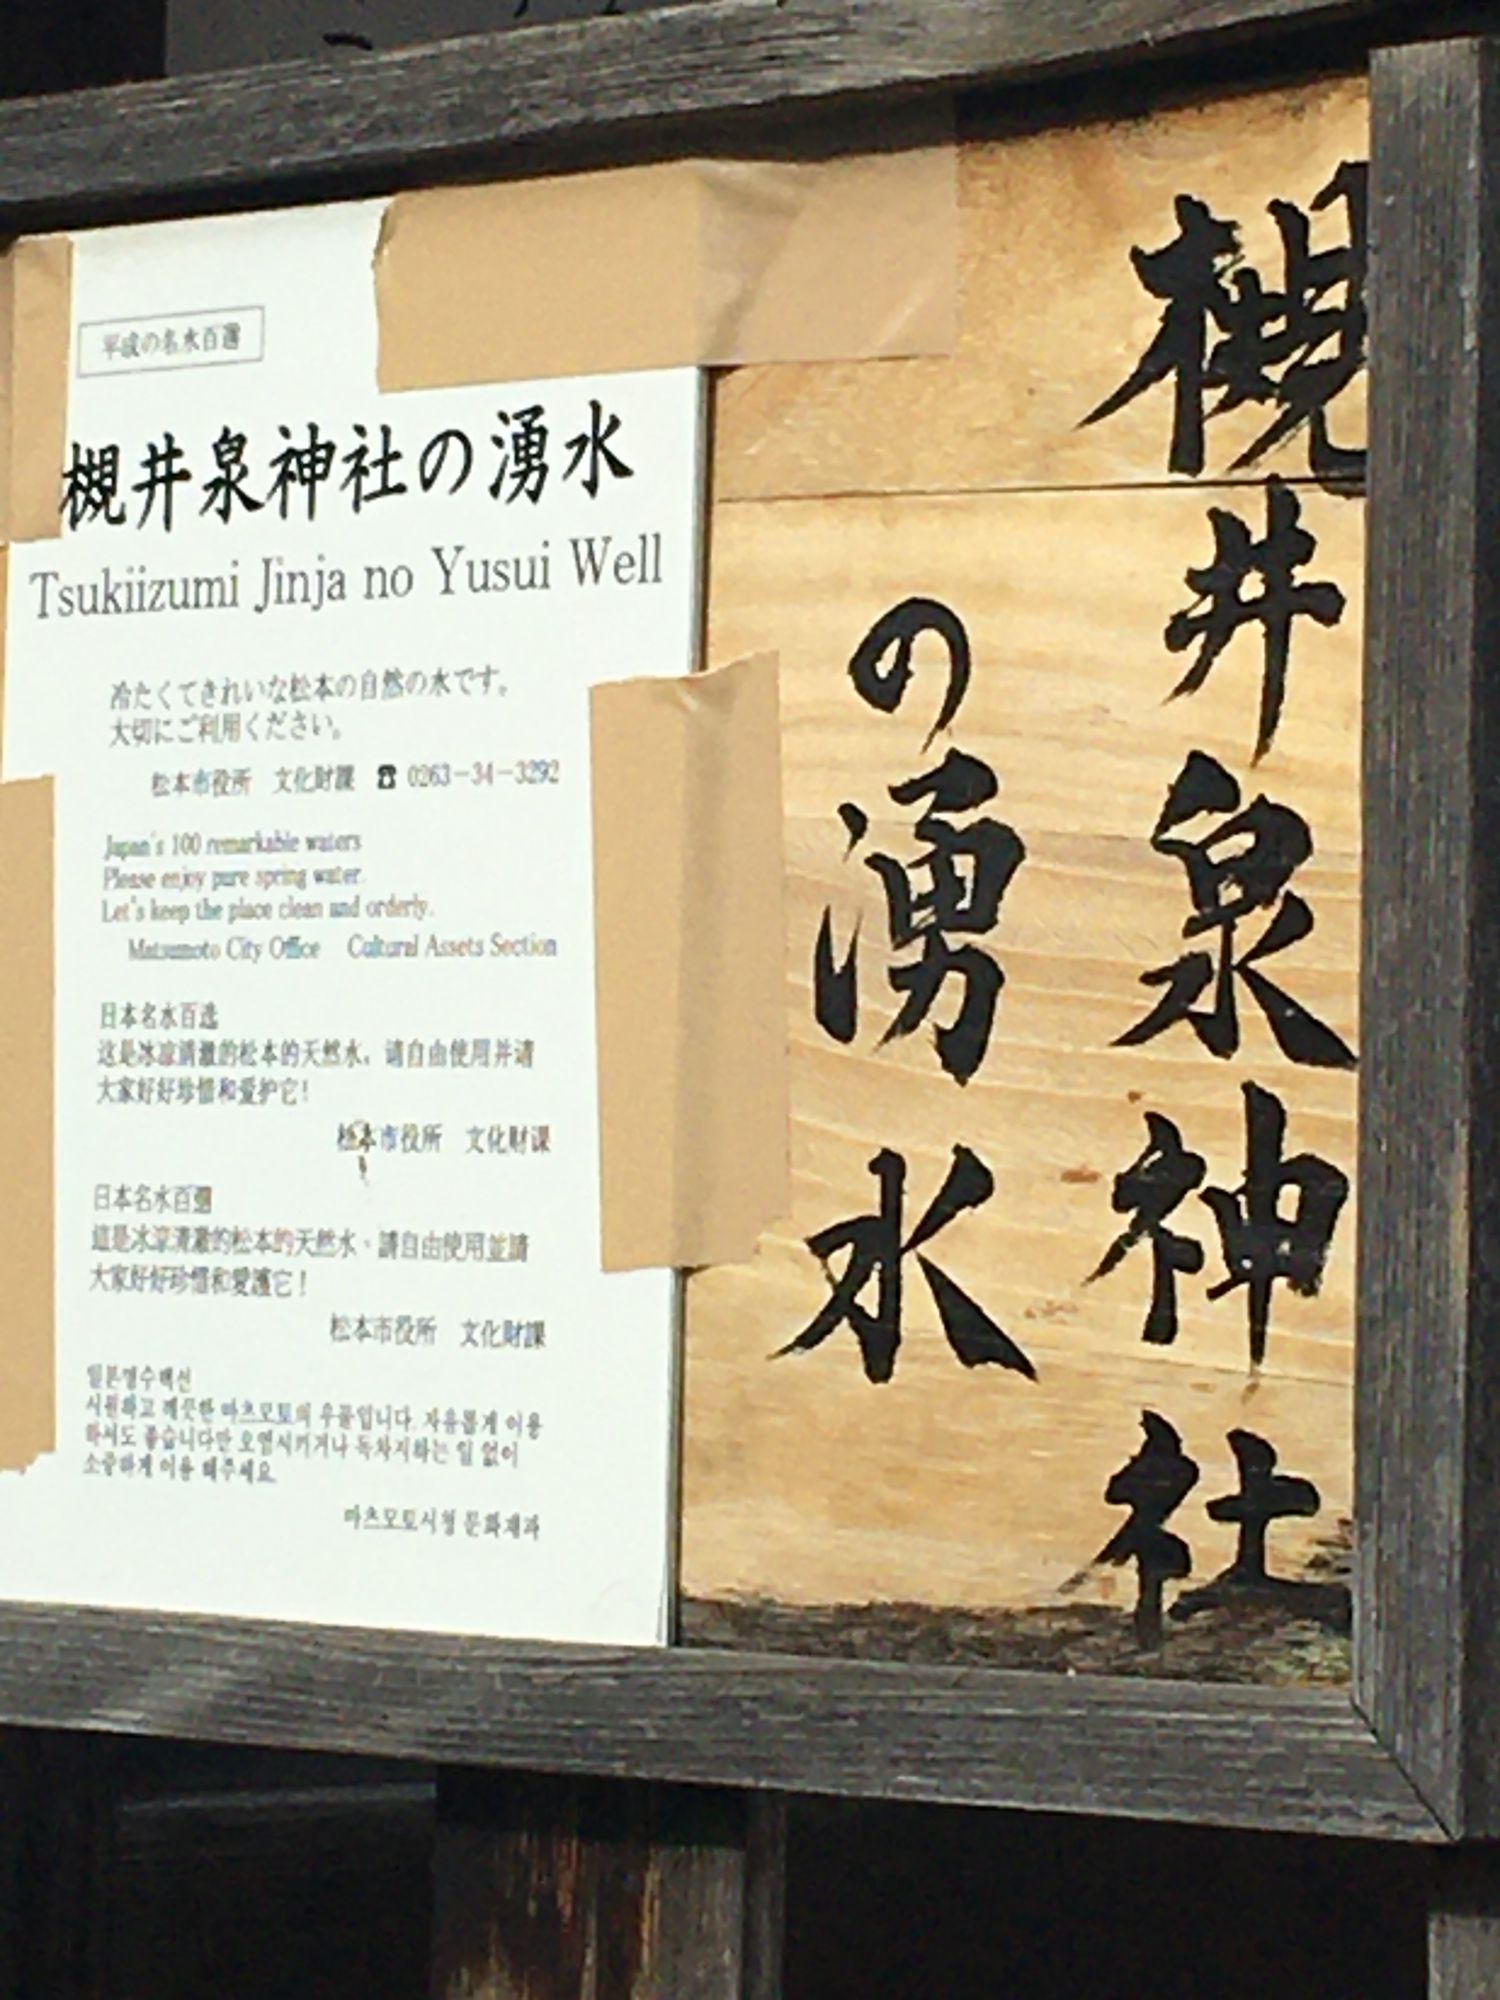 槻井泉神社
の湧水
平成の名水百選
槻井泉神社の湧水
Tsukiizumi Jinja no Yusui Well
冷たくてきれいな松本の自然の水です。
大切にご利用ください。
松本市役所　文化財課　☎ 0263－34－3292
Japan's 100 remarkable waters
Please enjoy pure spring water.
Let's keep the place clean and orderly.
Matsumoto City Office　Cultural Assets Section
日本名水百选
这是冰凉清澈的松本的天然水。请自由使用并请
大家好好珍惜和爱护它！
松本市役所　文化財課
日本名水百選
這是冰涼清澈的松本的天然水、請自由使用並請
大家好好珍惜和愛護它！
松本市役所　文化財課
일본명수백선
시원하고 깨끗한 마츠모토의 우물입니다. 자유롭게 이용
하셔도 좋습니다만 오염시키거나 독차지하는 일 없이
소중하게 이용 해주세요.
마츠모토시청 문화재과